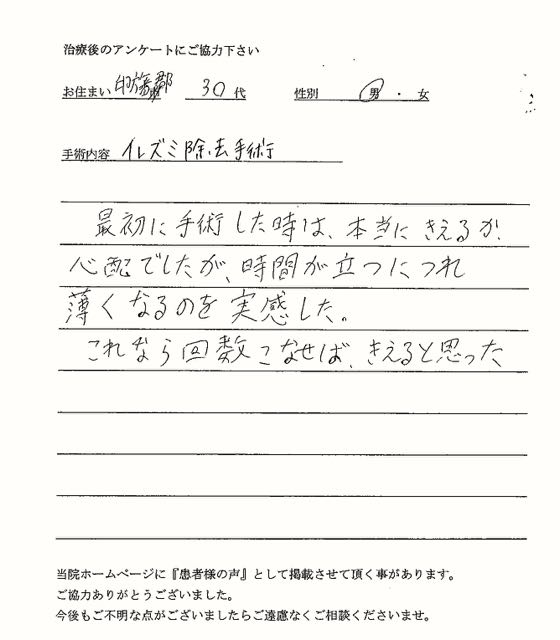 治療後のアンケートにご協力下さい
お住まい 印旛郡 30代 性別 男・女
手術内容 イレズミ除去手術
最初に手術した時は、本当にきえるか、
心配でしたが、時間が立つにつれ
薄くなるのを実感した。
これなら回数こなせば、きえると思った
当院ホームページに『患者様の声』として掲載させて頂く事があります。
ご協力ありがとうございました。
今後もご不明な点がございましたらご遠慮なくご相談くださいませ。